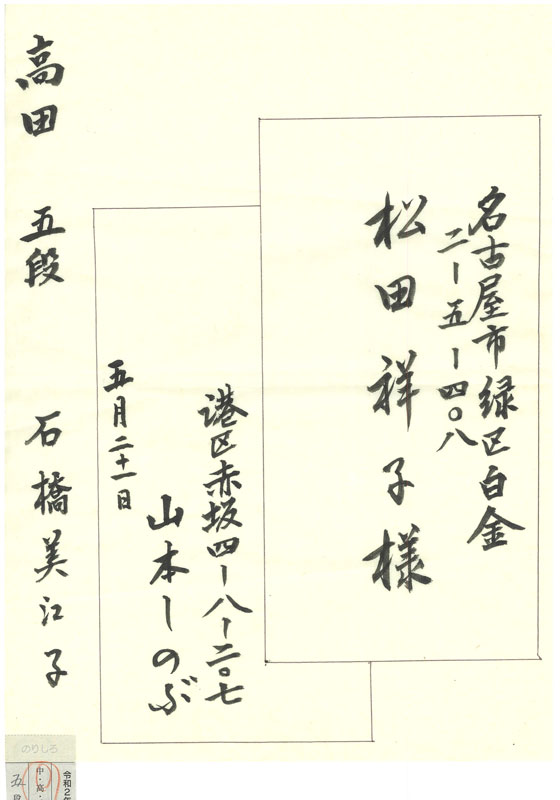 名古屋市緑区白金
二ー五ー四〇八
松田祥子様
港区赤坂四ー八ー二〇七
山本しのぶ
五月二十一日
高田 五段 石橋美江子
のりしろ
令和2年
中・高・
五段